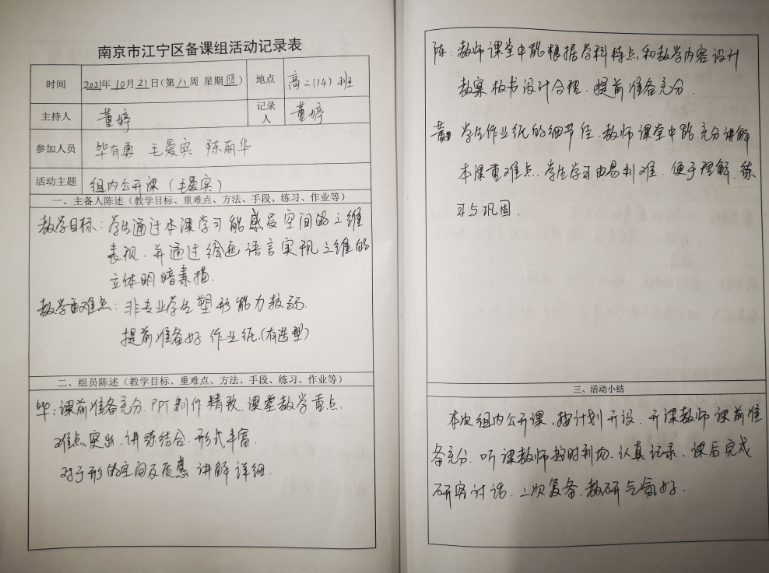 南京市江宁区备课组活动记录表
时间 2021年10月21日(第八周 星期四) 地点 高二(14)班
主持人 董婷 记录人 董婷
参加人员 毕有勇 毛晏宾 陈丽华
活动主题 组内公开课(毛晏宾)
一、主备人陈述(教学目标、重难点、方法、手段、练习、作业等)
教学目标:学生通过本课学习能感受空间的三维
表现,并通过绘画语言实现三维的
立体明暗素描
教学重难点:非专业学生塑形能力较弱.
提前准备好作业纸.(有造型)
二、组员陈述(教学目标、重难点、方法、手段、练习、作业等)
毕:课前准备充分.PPT制作精致.课堂教学重点.
难点突出.讲练结合.形式丰富.
对于形体空间及质感讲解详细.
陈:教师课堂中能根据学科特点和教学内容设计
教案.板书设计合理.提前准备充分.
董:学生作业纸的细节佳.教师课堂中能充分讲解
本课重难点.学生学习由易到难.便于理解.练
习与巩固.
三、活动小结
本次组内公开课.按计划开设.开课教师课前准
备充分.听课教师按时到场.认真记录.课后完成
研究讨论.二次复备.教研气氛好.